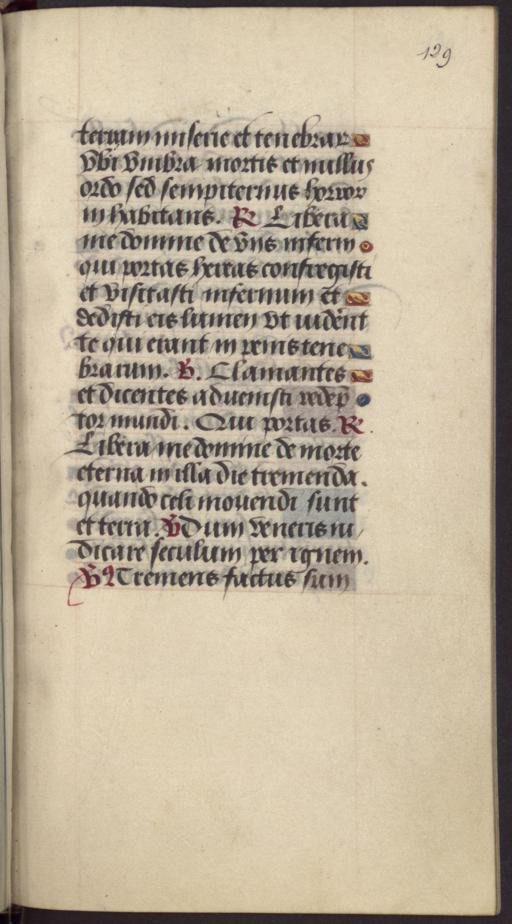 129
terram miserie et tenebrar
vbi vmbra mortis et nullus
ordo sed sempiternus horror
inhabitans. R Libera
me domine de viis inferni
qui portas hereas confregisti
et visitasti infernum et
dedisti eis lumen vt viderent
te qui erant in penis tene
brarum. V. Clamantes
et dicentes aduenisti redep̄
tor mundi. Qui portas. R
Libera me domine de morte
eterna in illa die tremenda.
quando celi mouendi sunt
et terra. V Dum veneris iu
dicare seculum per ignem.
V Tremens factus sum